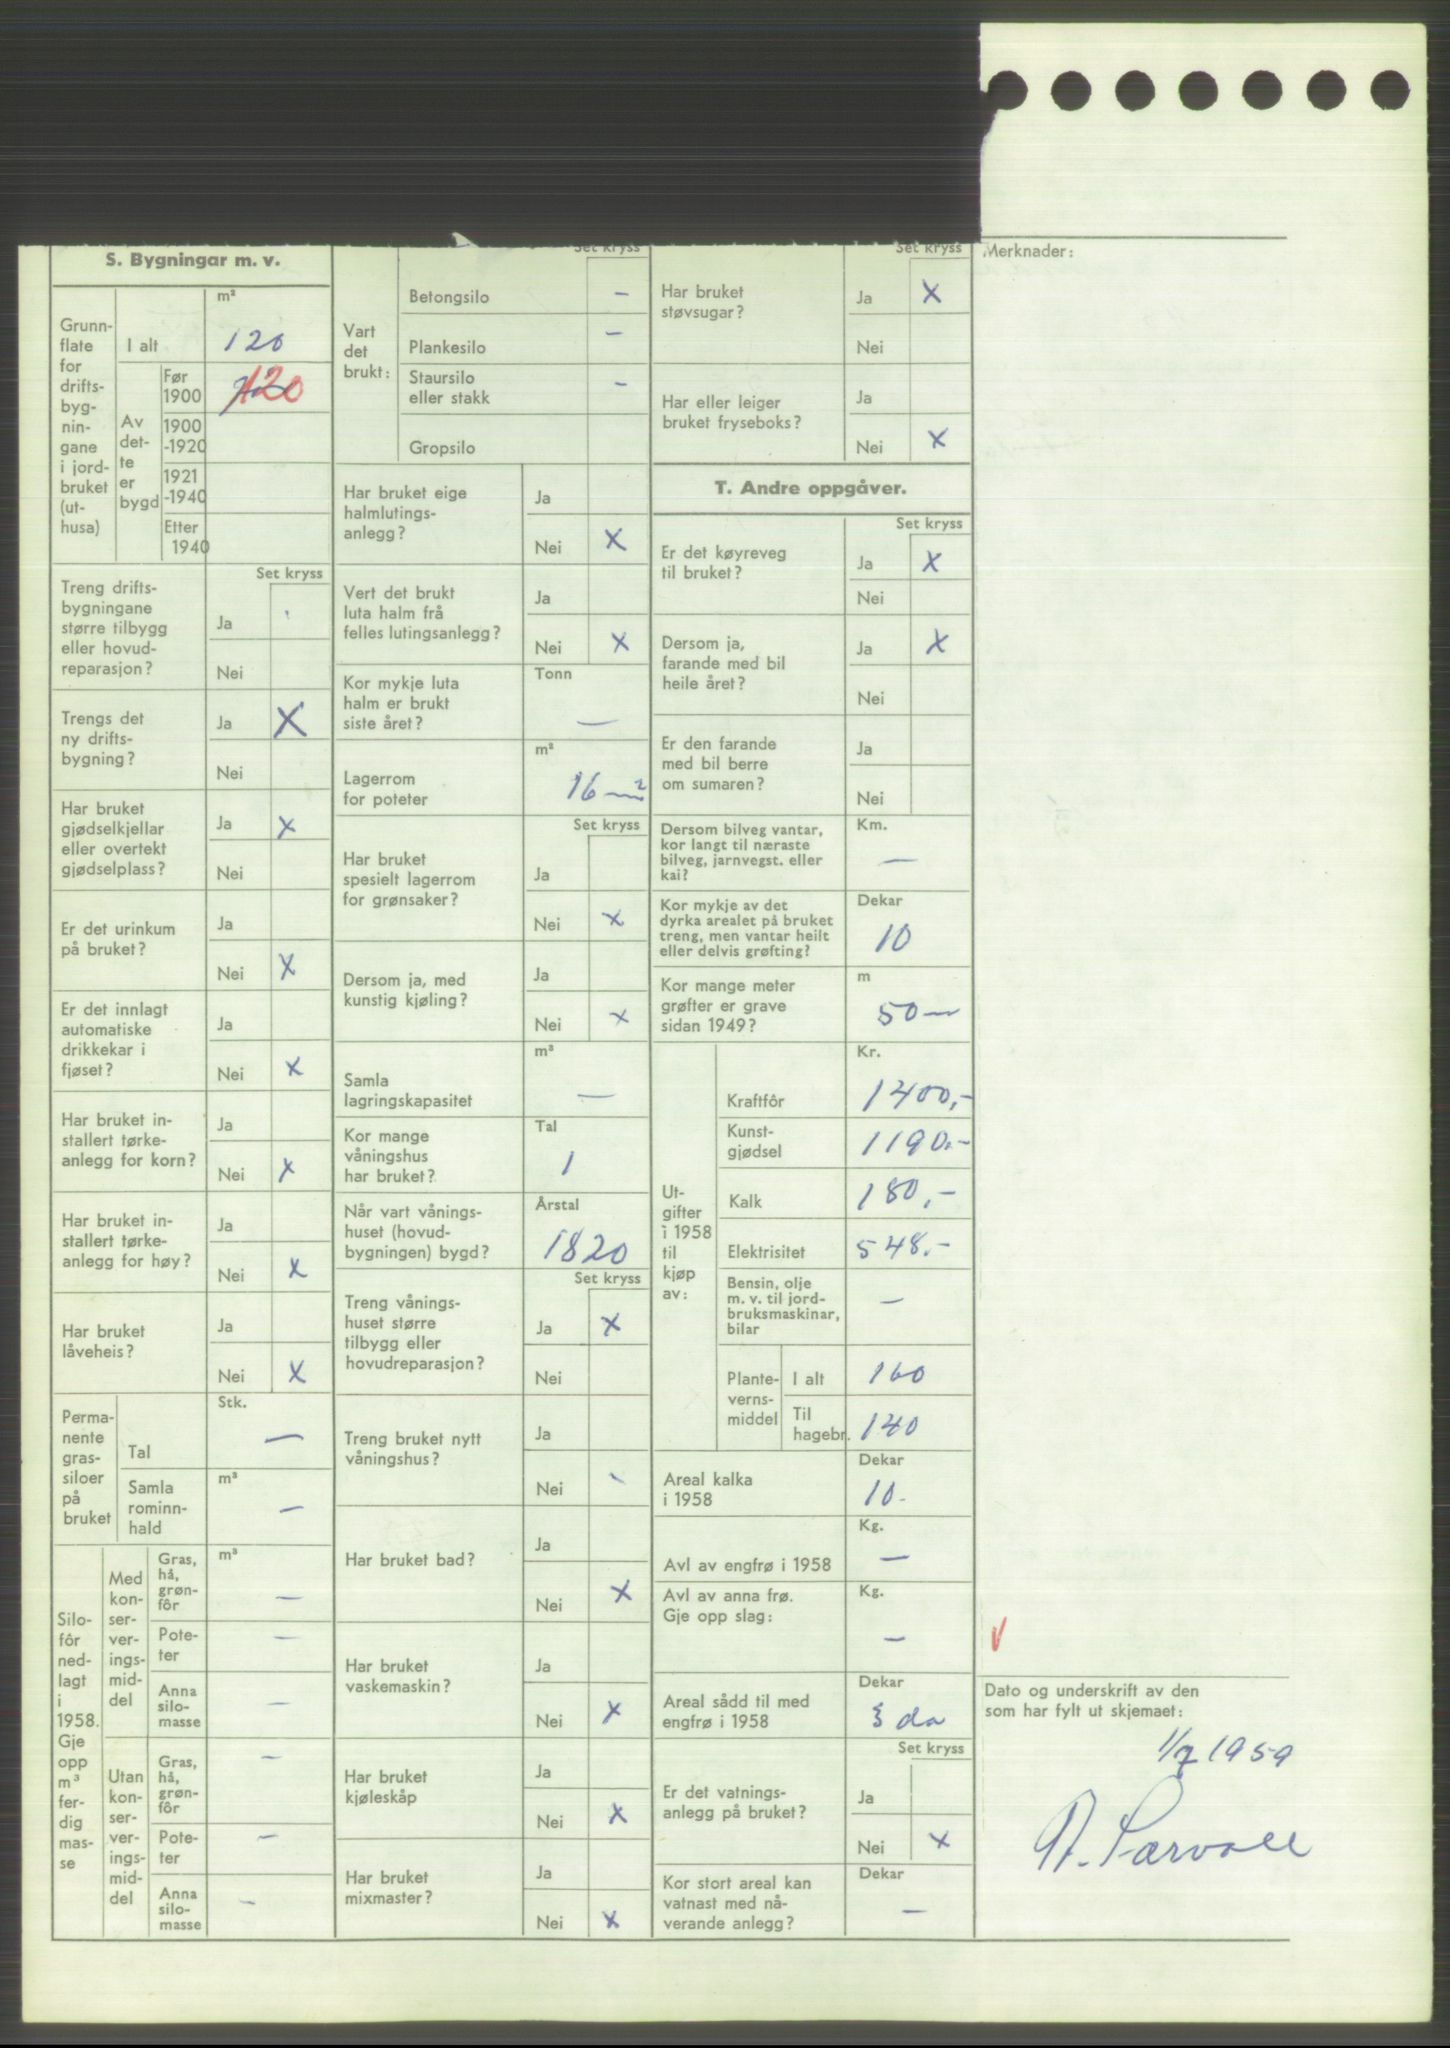 S. Bygningar m. v.
Grunn-
flate
for
drifts-
byg-
nin-
gane
i jord-
bruket
(ut-
husa)
m²
I alt 120
Av
det-
te
er
bygd
Før
1900 120
1900
-1920
1921
-1940
Etter
1940
Set kryss
Treng drifts-
bygningane
større tilbygg
eller hovud-
reparasjon?
Ja
Nei
Trengs det
ny drifts-
bygning?
Ja X
Nei
Har bruket
gjødselkjellar
eller overtekt
gjødselplass?
Ja x
Nei
Er det urinkum
på bruket?
Ja
Nei x
Er det innlagt
automatiske
drikkekar i
fjøset?
Ja
Nei x
Har bruket in-
stallert tørke-
anlegg for korn?
Ja
Nei x
Har bruket in-
stallert tørke-
anlegg for høy?
Ja
Nei x
Har bruket
låveheis?
Ja
Nei x
Perma-
nente
gras-
siloer
på
bruket
Stk.
Tal —
m³
Samla
rominn-
hald —
Silo-
fôr
ned-
lagt
i
1958.
Gje
opp
m³
fer-
dig
mas-
se
Med
kon-
ser-
ver-
ings-
mid-
del
m³
Gras,
hå,
grøn-
fôr —
Pote-
ter —
Anna
silo-
masse —
Utan
kon-
ser-
ver-
ings-
mid-
del
Gras,
hå,
grøn-
fôr —
Pote-
ter —
Anna
silo-
masse —
Set kryss
Vart
det
brukt:
Betongsilo —
Plankesilo —
Staursilo
eller stakk —
Gropsilo
Har bruket eige
halmlutings-
anlegg?
Ja
Nei x
Vert det brukt
luta halm frå
felles lutingsanlegg?
Ja
Nei x
Kor mykje luta
halm er brukt
siste året?
Tonn
—
Lagerrom
for poteter
m²
16 m²
Set kryss
Har bruket
spesielt lagerrom
for grønsaker?
Ja
Nei x
Dersom ja, med
kunstig kjøling?
Ja
Nei x
Samla
lagringskapasitet
m³
—
Kor mange
våningshus
har bruket?
Tal
1
Når vart vånings-
huset (hovud-
bygningen) bygd?
Årstal
1820
Set kryss
Treng vånings-
huset større
tilbygg eller
hovudreparasjon?
Ja x
Nei
Treng bruket nytt
våningshus?
Ja
Nei -
Har bruket bad?
Ja
Nei x
Har bruket
vaskemaskin?
Ja
Nei x
Har bruket
kjøleskåp
Ja
Nei x
Har bruket
mixmaster?
Ja
Nei x
Set kryss
Har bruket
støvsugar?
Ja x
Nei
Har eller leiger
bruket fryseboks?
Ja
Nei x
T. Andre oppgåver.
Set kryss
Er det køyreveg
til bruket?
Ja x
Nei
Dersom ja,
farande med bil
heile året?
Ja x
Nei
Er den farande
med bil berre
om sumaren?
Ja
Nei
Dersom bilveg vantar,
kor langt til næraste
bilveg, jarnvegst. eller
kai?
Km.
—
Kor mykje av det
dyrka arealet på bruket
treng, men vantar heilt
eller delvis grøfting?
Dekar
10
Kor mange meter
grøfter er grave
sidan 1949?
m
50 m
Ut-
gifter
i 1958
til
kjøp
av:
Kr.
Kraftfôr 1400,-
Kunst-
gjødsel 1190.-
Kalk 180,-
Elektrisitet 548.-
Bensin, olje
m. v. til jord-
bruksmaskinar,
bilar —
Plante-
verns-
middel
I alt 160
Til
hagebr. 140
Areal kalka
i 1958
Dekar
10.
Avl av engfrø i 1958
Kg.
—
Avl av anna frø.
Gje opp slag:
Kg.
—
Areal sådd til med
engfrø i 1958
Dekar
3 da
Set kryss
Er det vatnings-
anlegg på bruket?
Ja
Nei x
Kor stort areal kan
vatnast med nå-
verande anlegg?
Dekar
—
Merknader:
V
Dato og underskrift av den
som har fylt ut skjemaet:
1/7 1959